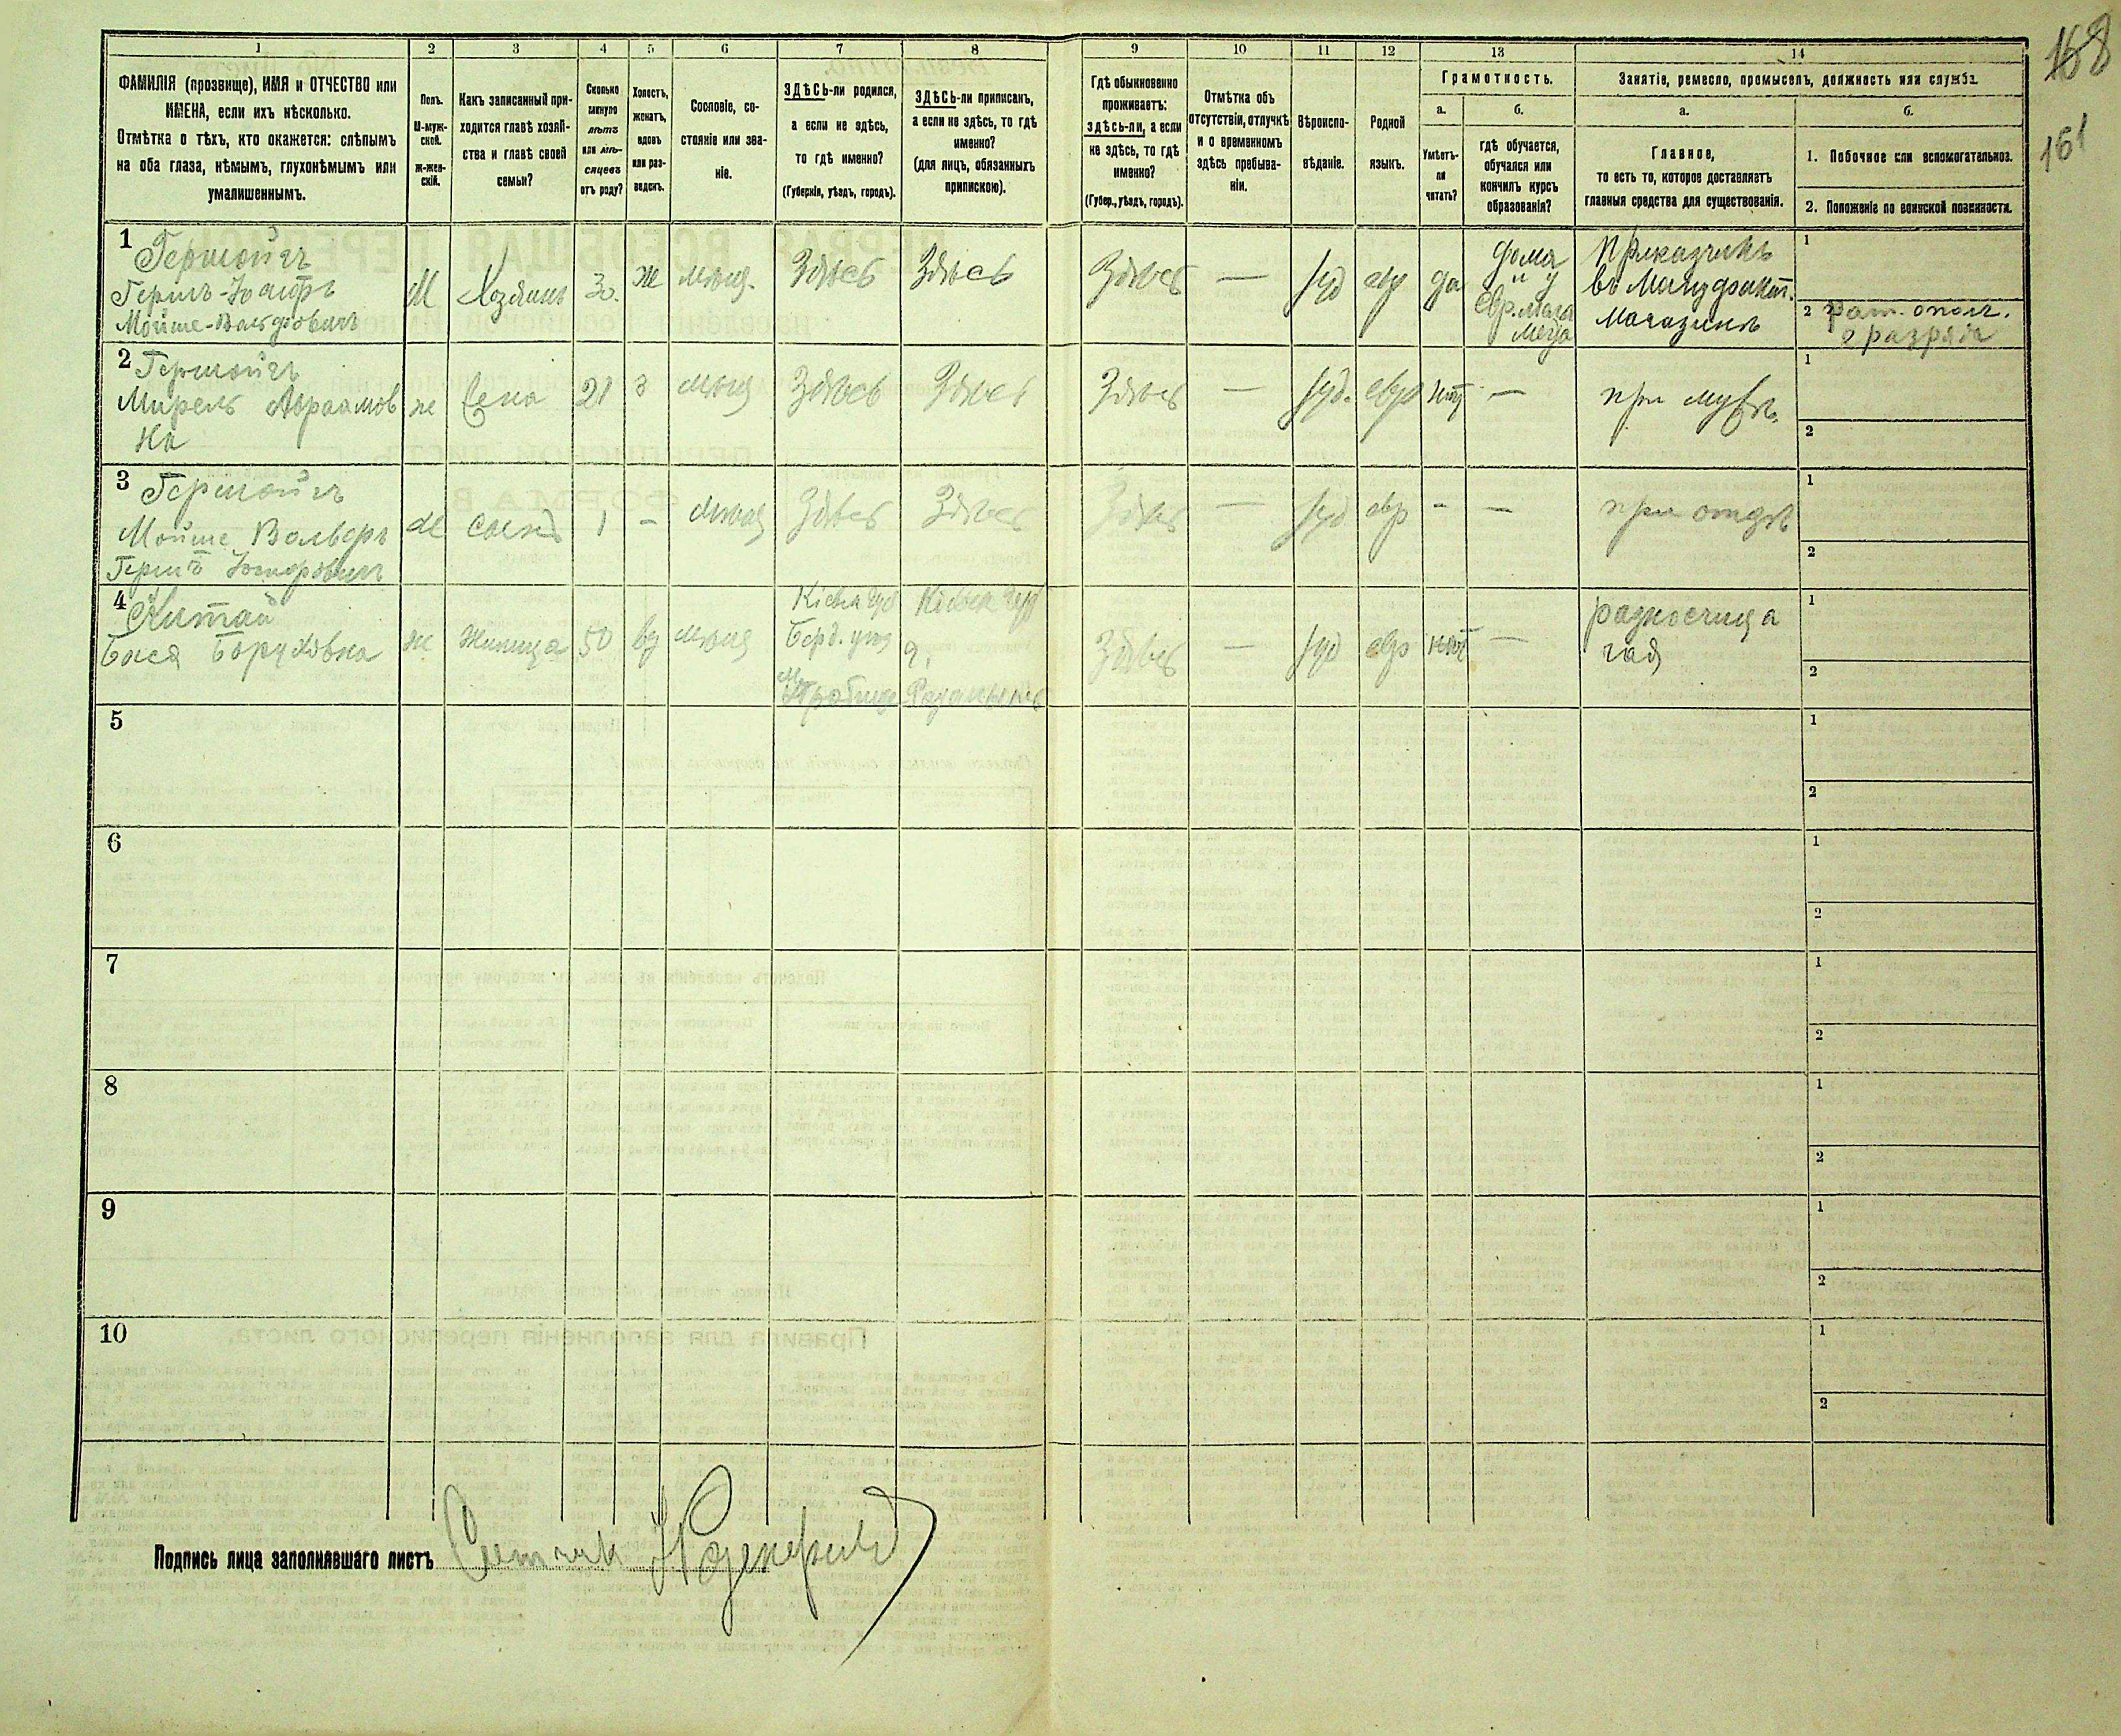 168
161
1 2 3 4 5 6 7 8 9 10 11 12 13 14
ФАМИЛІЯ (прозвище), ИМЯ и ОТЧЕСТВО или
ИМЕНА, если ихъ нѣсколько.
Отмѣтка о тѣхъ, кто окажется: слѣпымъ
на оба глаза, нѣмымъ, глухонѣмымъ или
умалишеннымъ.
Полъ.
М-муж-
ской.
Ж-жен-
скій.
Какъ записанный при-
ходится главѣ хозяй-
ства и главѣ своей
семьи?
Сколько
минуло
лѣтъ
или мѣ-
сяцевъ
отъ роду?
Холостъ,
женатъ,
вдовъ
или раз-
веденъ.
Сословіе, со-
стояніе или зва-
ніе.
ЗДѢСЬ-ли родился,
а если не здѣсь,
то гдѣ именно?
(Губернія, уѣздъ, городъ).
ЗДѢСЬ-ли приписанъ,
а если не здѣсь, то гдѣ
именно?
(для лицъ, обязанныхъ
припискою).
Гдѣ обыкновенно
проживаетъ:
здѣсь-ли, а если
не здѣсь, то гдѣ
именно?
(Губер., уѣздъ, городъ).
Отмѣтка объ
отсутствіи, отлучкѣ
и о временномъ
здѣсь пребыва-
ніи.
Вѣроиспо-
вѣданіе.
Родной
языкъ.
Грамотность.
а.
Умѣетъ-
ли
читать?
б.
гдѣ обучается,
обучался или
кончилъ курсъ
образованія?
Занятіе, ремесло, промыселъ, должность или служба.
а.
Главное,
то есть то, которое доставляетъ
главныя средства для существованія.
б.
1. Побочное или вспомогательное.
2. Положеніе по воинской повинности.
1
Гершойгъ
Гершъ-Іосифъ
Мойше-Вольфовичъ
М
Хозяинъ
30.
ж
мѣщ.
Здѣсь
Здѣсь
Здѣсь
—
іуд
евр
да
дома
и у
евр. мела
меда
Приказчикъ
въ Мануфакт.
Магазинѣ
1
2 Рат. ополч.
2 разряда
2
Гершойгъ
Мирель Абрамов
на
ж
жена
21
з
мѣщ
Здѣсь
Здѣсь
Здѣсь
—
іуд.
евр
нѣт
—
при мужѣ.
1
2
3
Гершойгъ
Мойше Вольфъ
Гершъ Іосифовичъ
м
сынъ
1
–
мѣщ
Здѣсь
Здѣсь
Здѣсь
—
іуд
евр
-
—
при отцѣ
1
2
4
Китай
Бася Боруховна
ж
жилица
50
вд
мѣщ
Кіевск губ
Берд. уѣз
Кіевск губ
Здѣсь
—
іуд
евр
нѣт
—
разносчица
1
2
5
1
2
6
1
2
7
1
2
8
1
2
9
1
2
10
1
2
Подпись лица заполнявшаго листъ Счетчик